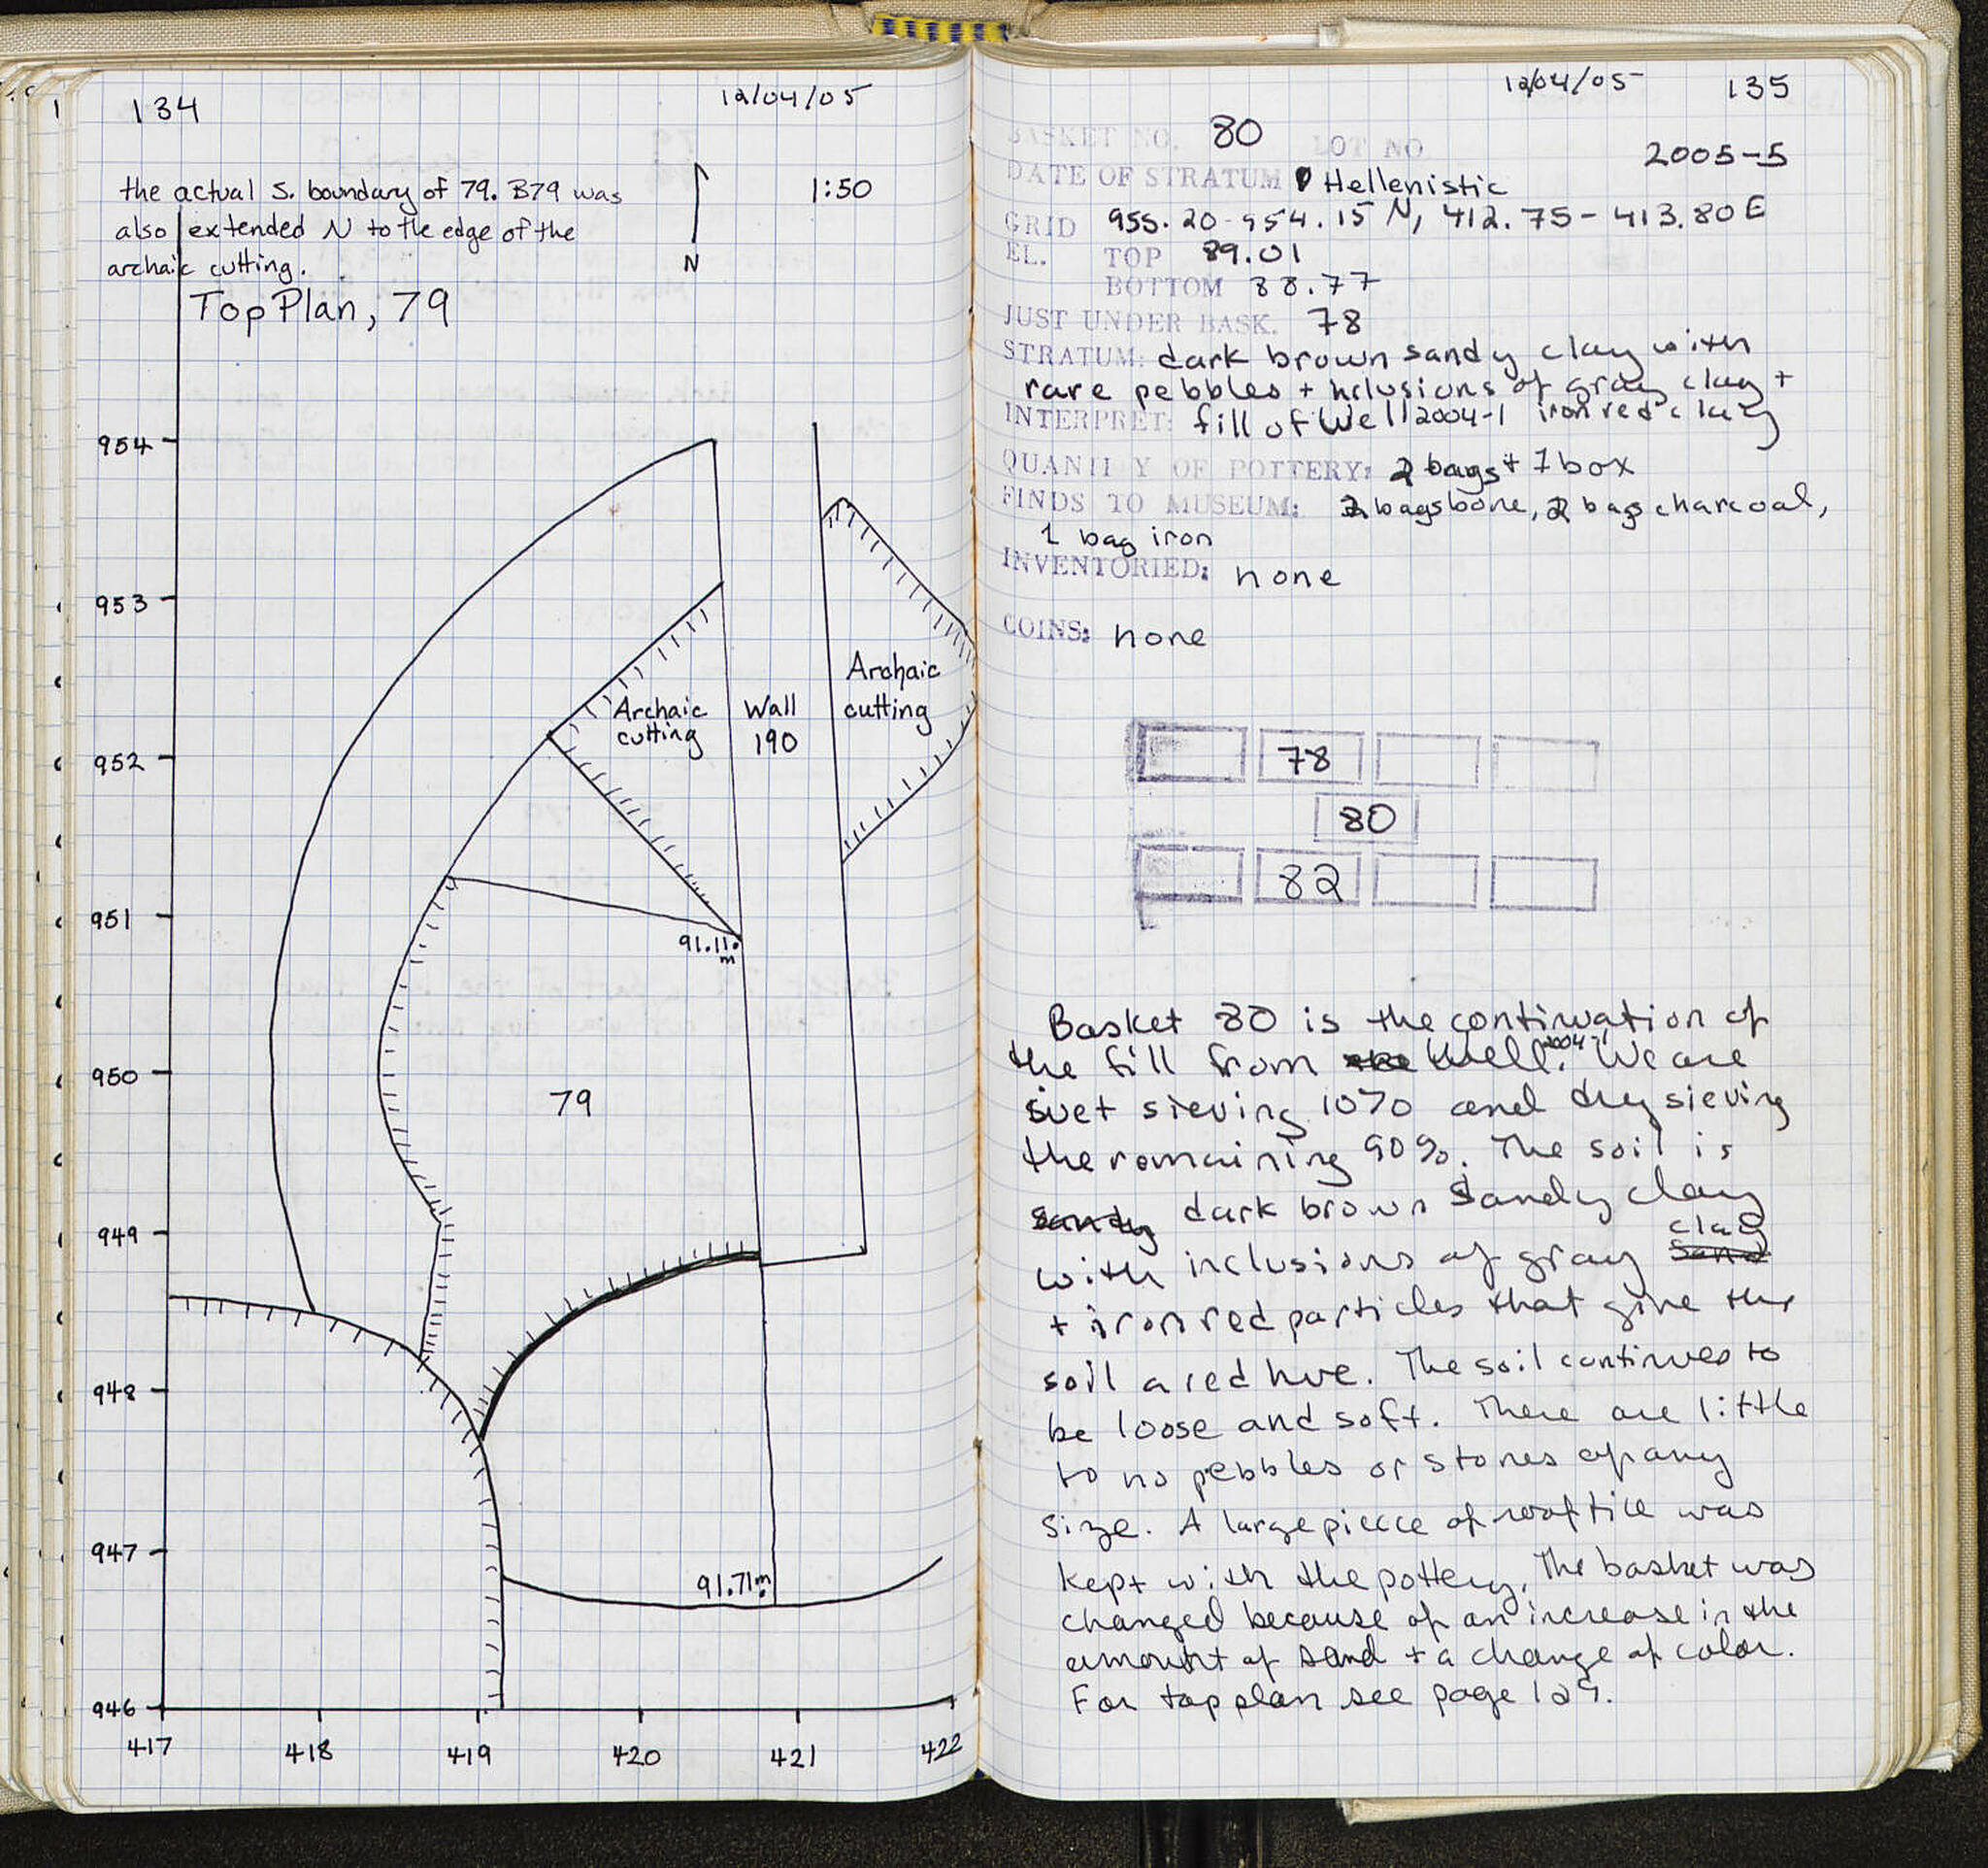 134
12/04/05
the actual S. boundary of 79. B79 was
also extended N to the edge of the
archaic cutting.
N
1:50
Top Plan, 79
954
953
952
951
950
949
948
947
946
417
418
419
420
421
422
Archaic
cutting
Wall
190
Archaic
cutting
91.11
m
79
91.71m
12/04/05
135
BASKET NO. 80 LOT NO
2005-5
DATE OF STRATUM Hellenistic
GRID 955.20-954.15 N, 412.75-413.80 E
EL. TOP 89.01
BOTTOM 88.77
JUST UNDER BASK. 78
STRATUM: dark brown sandy clay with
rare pebbles + inclusions of gray clay +
INTERPRET: fill of Well 2004-1 iron red clay
QUANTITY OF POTTERY: 2 bags + 1 box
FINDS TO MUSEUM: 2 bags bone, 2 bags charcoal,
1 bag iron
INVENTORIED: none
COINS: none
78
80
82
Basket 80 is the continuation of
the fill from the Well 2004-1. We are
wet sieving 10% and dry sieving
the remaining 90%. The soil is
sandy dark brown sandy clay
clay
with inclusions of gray sand
+ iron red particles that give the
soil a red hue. The soil continues to
be loose and soft. There are little
to no pebbles or stones of any
size. A large piecce of rooftile was
kept with the pottery. The basket was
changed because of an increase in the
amount of sand + a change of color.
For top plan see page 129.